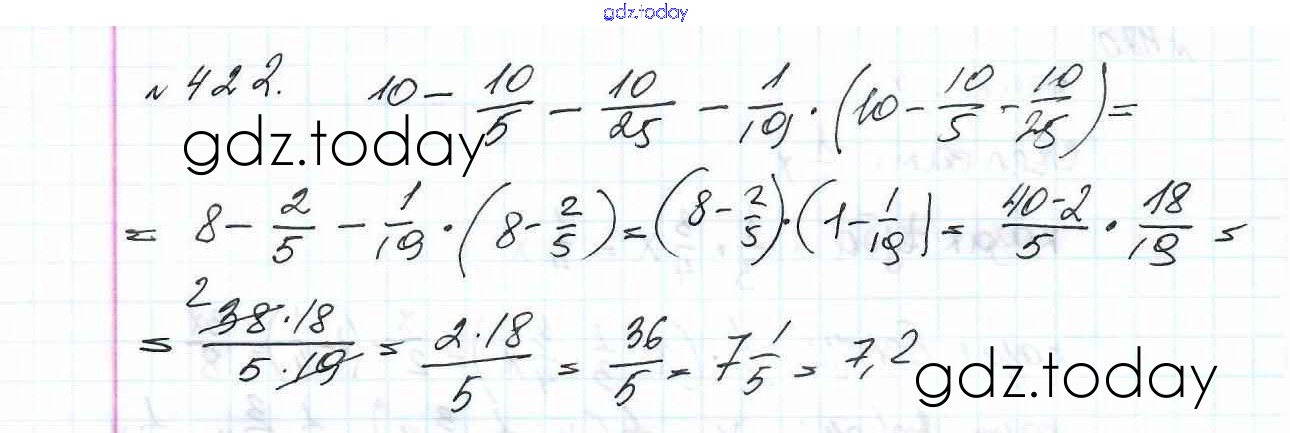 gdz.today
№ 422. 10 - 10/5 - 10/25 - 1/19 · (10 - 10/5 - 10/25) =
gdz.today
= 8 - 2/5 - 1/19 · (8 - 2/5) = (8 - 2/5) · (1 - 1/19) = (40-2)/5 · 18/19 =
= (2 38·18)/(5·19) = (2·18)/5 = 36/5 = 7 1/5 = 7,2
gdz.today